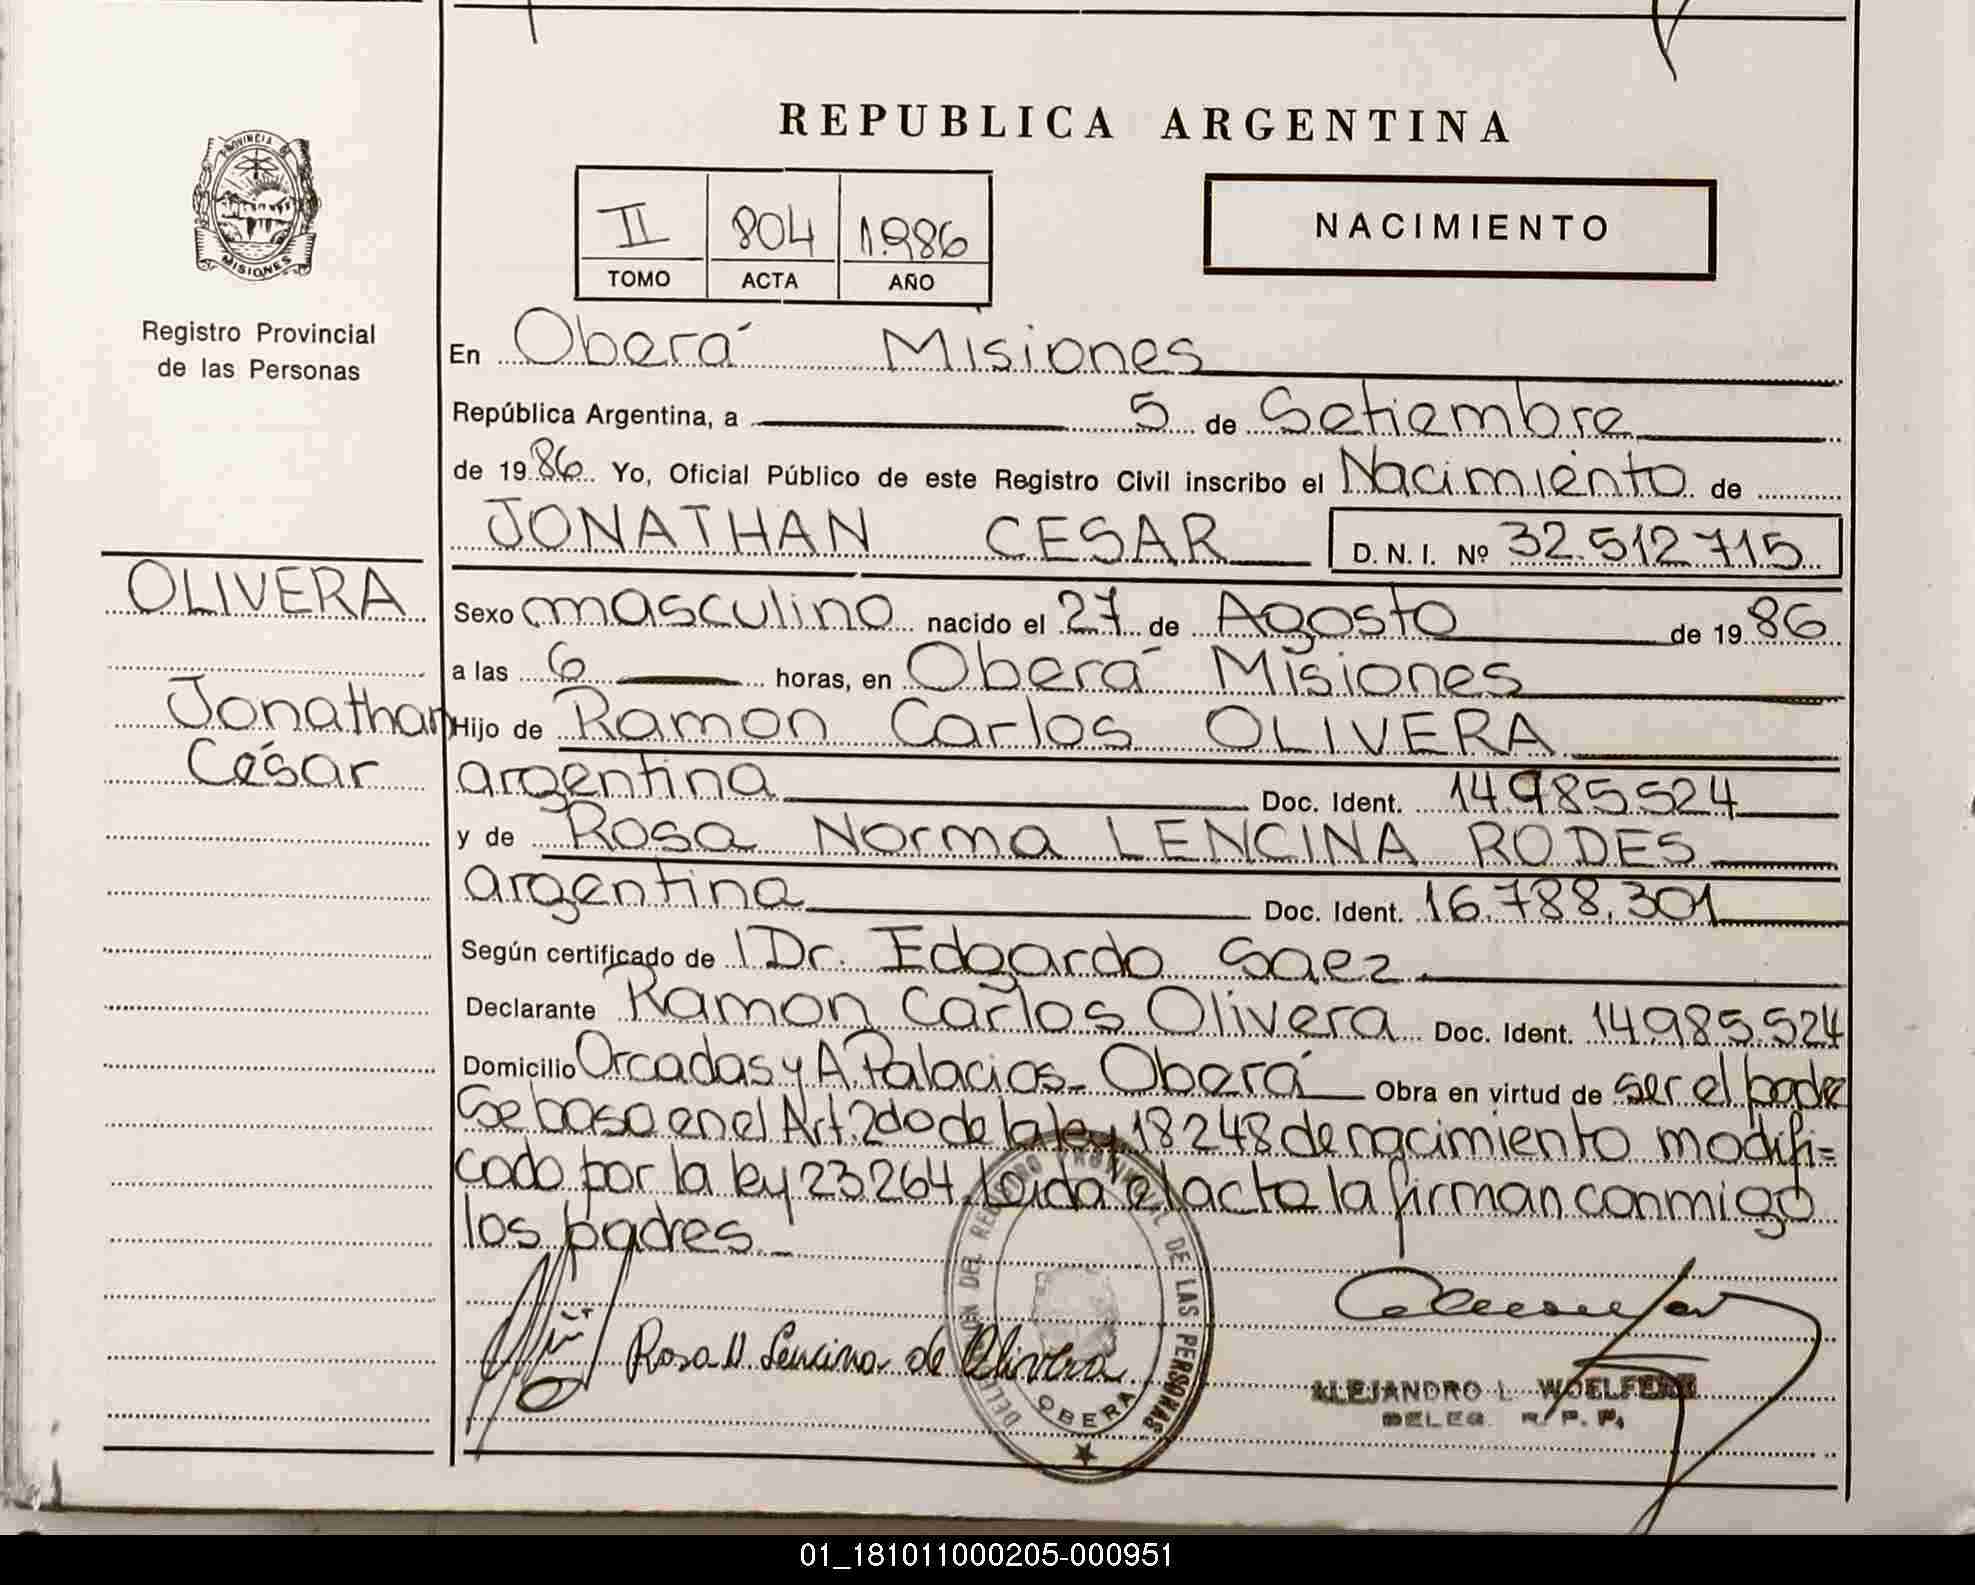 PROVINCIA DE
MISIONES
Registro Provincial
de las Personas
OLIVERA
Jonathan
César
REPUBLICA ARGENTINA
II 804 1.986
TOMO ACTA AÑO
NACIMIENTO
En Oberá Misiones
República Argentina, a 5 de Setiembre
de 19 86 Yo, Oficial Público de este Registro Civil inscribo el Nacimiento de
JONATHAN CESAR D. N. I. Nº 32.512.715
Sexo masculino nacido el 27 de Agosto de 19 86
a las 6 horas, en Oberá Misiones
Hijo de Ramon Carlos OLIVERA
argentina Doc. Ident. 14.985.524
y de Rosa Norma LENCINA RODES
argentina Doc. Ident. 16.788.301
Según certificado de Dr. Edgardo Saez
Declarante Ramon Carlos Olivera Doc. Ident. 14.985.524
Domicilio Orcadas y A. Palacios - Oberá Obra en virtud de ser el padre
Se basa en el Art. 2do de la ley 18248 de nacimiento modifi=
cado por la ley 23264. Leida el acta la firman conmigo
los padres
Rosa N Lencina de Olivera
DEL REGISTRO PROVINCIAL DE LAS PERSONAS
OBERA
ALEJANDRO L.
DELEG. R. P. P.
01_181011000205-000951